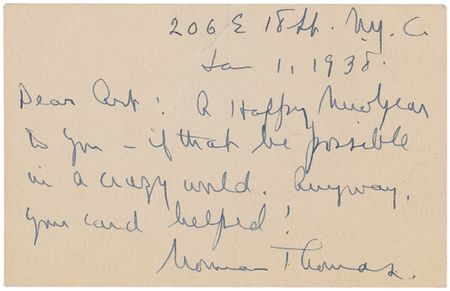 206 E 18 St. N.Y. C.
Jan 1, 1938.
Dear Art: A Happy New Year
to you – if that be possible
in a crazy world. Anyway,
your card helped!
Norman Thomas.